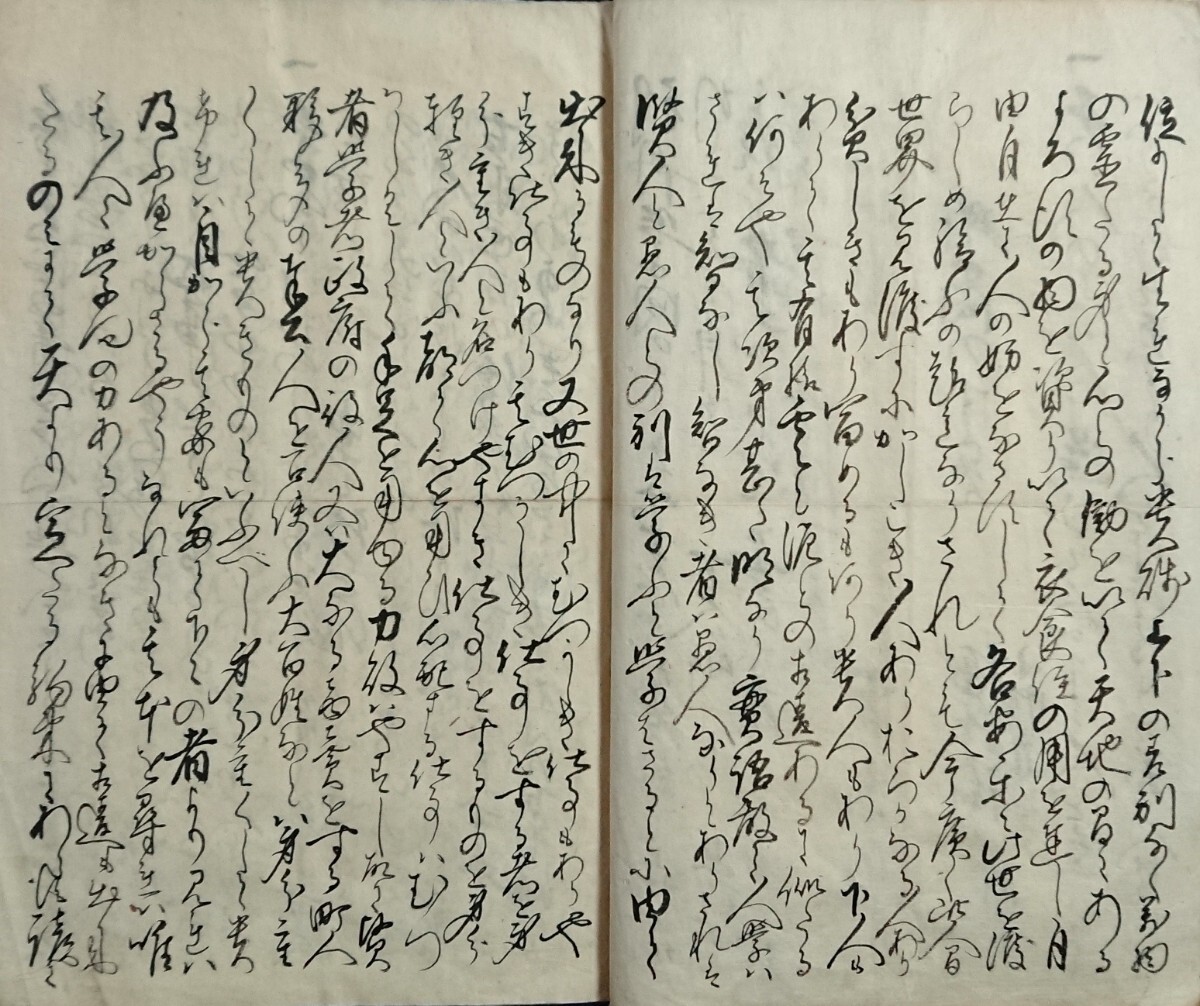 位にして生れなから貴賤上下の差別なく万物
の霊たる身と心との働を以て天地の間にある
よろつの物を資り以て衣食住の用を達し自
由自在互に人の妨をなさすして各安楽に此世を渡
らしめ給ふの趣意なりされとも今広く此人間
世界を見渡すにかしこき人ありおろかなる人あり
貧しきもあり富めるもあり貴人もあり下人も
ありて其有様雲と泥との相違あるに似たる
ハ何そや其次第甚た明なり實語教に人学ハ
されは智なし智なき者ハ愚人なりとありされは
賢人と愚人との別は学ふと学はさるとに由て
出来るものなり又世の中にむつかしき仕事もありや
すき仕事もあり其むつかしき仕事をする者を身
分重き人と名つけやすき仕事をするものを身分
軽き人といふ都て心を用ひ心配する仕事ハむつ
かしくして手足を用ゆる力役ハやすし故に医
者学者政府の役人又ハ大なる商売をする町人
夥多の奉公人を召使ふ大百姓なとハ身分重
くして貴きものといふべし身分重くして貴
けれハ自から其家も富て下々の者より見れハ
及ふ可からさるやうなれとも其本を尋れハ唯
其人に学問の力あるとなきとに由て相違も出来
たるのみにて天より定たる約束にあらす諺に